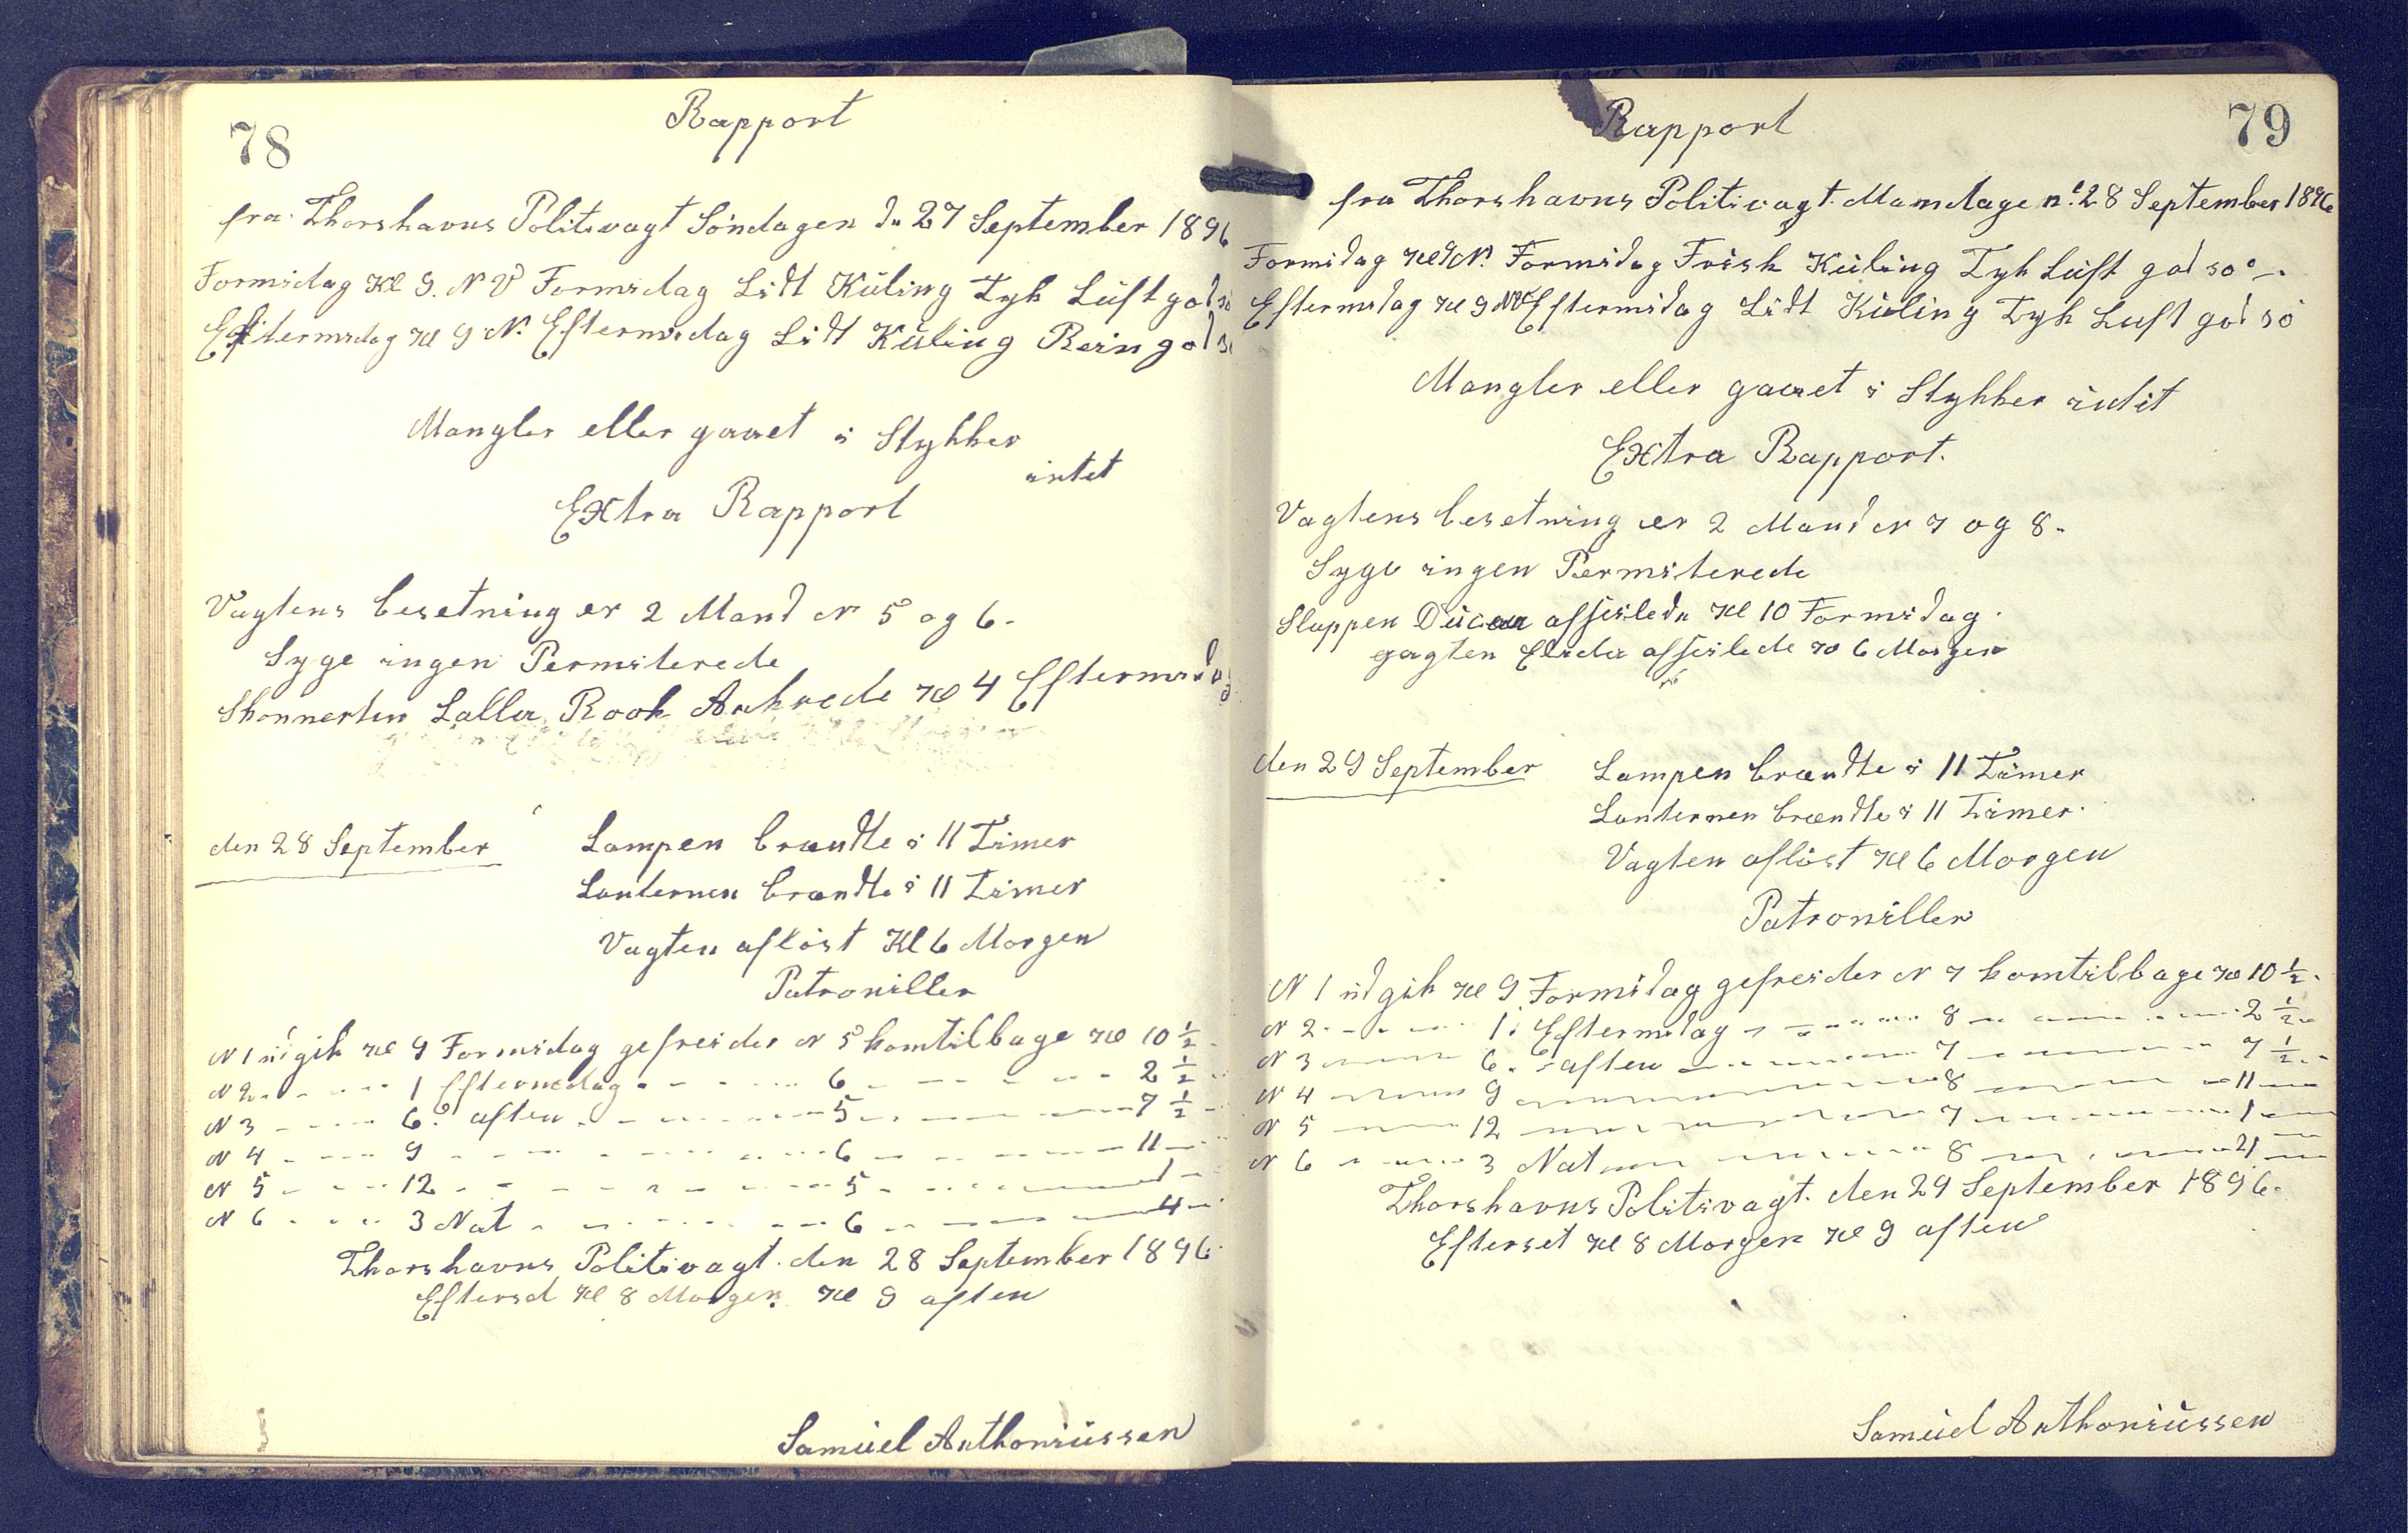 78
Rapport
fra Thorshavns Politivagt Söndagen dn 27 September 1896
Formidag Kl 9. N V Formidag Lidt Küling Tyk Lüft god sö
Eftermidag Kl 9 N. Eftermidag Lidt Küling Rein god
Mangler eller gaaet i Stykker
intet
Extra Rapport
Vagtens besetning er 2 Mand N 5 og 6.
Syge ingen Permiterede
Skonnerten Lalla Rook Ankrede Kl 4 Eftermidag
den 28 September
Lampen brændte i 11 Timer
Lanternen brændte i 11 Timer
Vagten aflöst Kl 6 Morgen
Patroniller
N 1 üdgik Kl 9 Formidag gefreider N 5 komtilbage Kl 10 ½
N 2 - - - 1 Eftermidag - - - 6 - - - 2 ½
N 3 - - - 6. aften - - - 5 - - - 7 ½
N 4 - - - 9 - - - 6 - - - 11
N 5 - - - 12 - - - 5 - - - 1
N 6 - - - 3 Nat - - - 6 - - - 4
Thorshavns Politivagt. den 28 September 1896
Efterset Kl 8 Morgen Kl 9 aften
Samüel Anthoniüssen
79
Rapport
fra Thorshavns Politivagt. Mandage n. 28 September 1896
Formidag Kl 9 N. Formidag Frisk Küling Tyk Lüft god sö
Eftermidag Kl 9 NV Eftermidag Lidt Küling Tyk Luft god sö
Mangler eller gaaet i Stykker intet
Extra Rapport.
Vagtens besetning er 2 Mand N 7 og 8.
Syge ingen Permiterede
Sluppen afseilede Kl 10 Formidag.
afseilede Kl 6 Morgen
den 29 September
Lampen brændte i 11 Timer
Lanternen brændte i 11 Timer.
Vagten aflöst Kl 6 Morgen
Patroniller
N 1 üdgik Kl 9 Formidag gefreider N 7 komtilbage Kl 10 ½.
N 2 - - - 1. Eftermidag - - - 8 - - - 2 ½
N 3 - - - 6. aften - - - 7 - - - 7 ½
N 4 - - - 9 - - - 8 - - - 11
N 5 - - - 12 - - - 7 - - - 1
N 6 - - - 3 Nat - - - 8 - - - 4
Thorshavns Politivagt. den 29 September 1896.
Efterset Kl 8 Morgen Kl 9 aften
Samüel Anthoniüssen